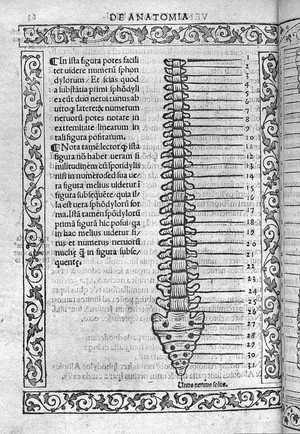 DE ANATOMIA
¶ In ista figura potes facili
ter uidere numerũ sphon
dylorum. Et scias quod
a substãtia primi sphõdyli
exeũt duo nerui: unus ab
utroq; latere: & numerum
neruorũ potes notare in
extremitate linearum in
tali figura positarum.
¶ Nota tamẽ lector qꝫ ista
figura nõ habet ueram si
militudinẽ cũ spondylis
nisi in numero: sed sua ue
ra figura melius uidetur ĩ
figura subsequẽte. quia il
la est uera sphõdylorũ for
ma. Ista tamẽ sphõdylorũ
prima figura hic posui. qa
in hac melius uidetur si
tus et numerus neruorũ
nuchę q̃ in figura subse
quenti.
1
2
3
4
5
6
7
8
9
10
11
12
13
14
15
16
17
18
19
20
21
22
23
24
25
26
27
28
29
30
31
Unus neruus solus.